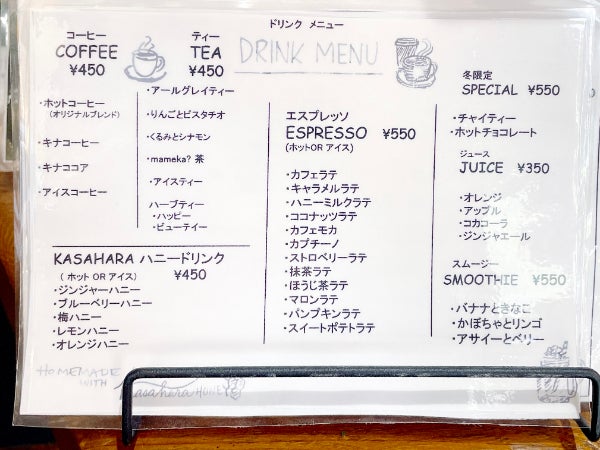 ドリンク メニュー
DRINK MENU
コーヒー
COFFEE
¥450
・ホットコーヒー
(オリジナルブレンド)
・キナコーヒー
・キナココア
・アイスコーヒー
ティー
TEA
¥450
・アールグレイティー
・りんごとピスタチオ
・くるみとシナモン
・mameka? 茶
・アイスティー
ハーブティー
・ハッピー
・ビューテイー
KASAHARA ハニードリンク
( ホット OR アイス) ¥450
・ジンジャーハニー
・ブルーベリーハニー
・梅ハニー
・レモンハニー
・オレンジハニー
エスプレッソ
ESPRESSO ¥550
(ホットOR アイス)
・カフェラテ
・キャラメルラテ
・ハニーミルクラテ
・ココナッツラテ
・カフェモカ
・カプチーノ
・ストロベリーラテ
・抹茶ラテ
・ほうじ茶ラテ
・マロンラテ
・パンプキンラテ
・スイートポテトラテ
冬限定
SPECIAL ¥550
・チャイティー
・ホットチョコレート
ジュース
JUICE ¥350
・オレンジ
・アップル
・コカコーラ
・ジンジャエール
スムージー
SMOOTHIE ¥550
・バナナときなこ
・かぼちゃとリンゴ
・アサイーとベリー
HOMEMADE
WITH
Kasahara HONEY